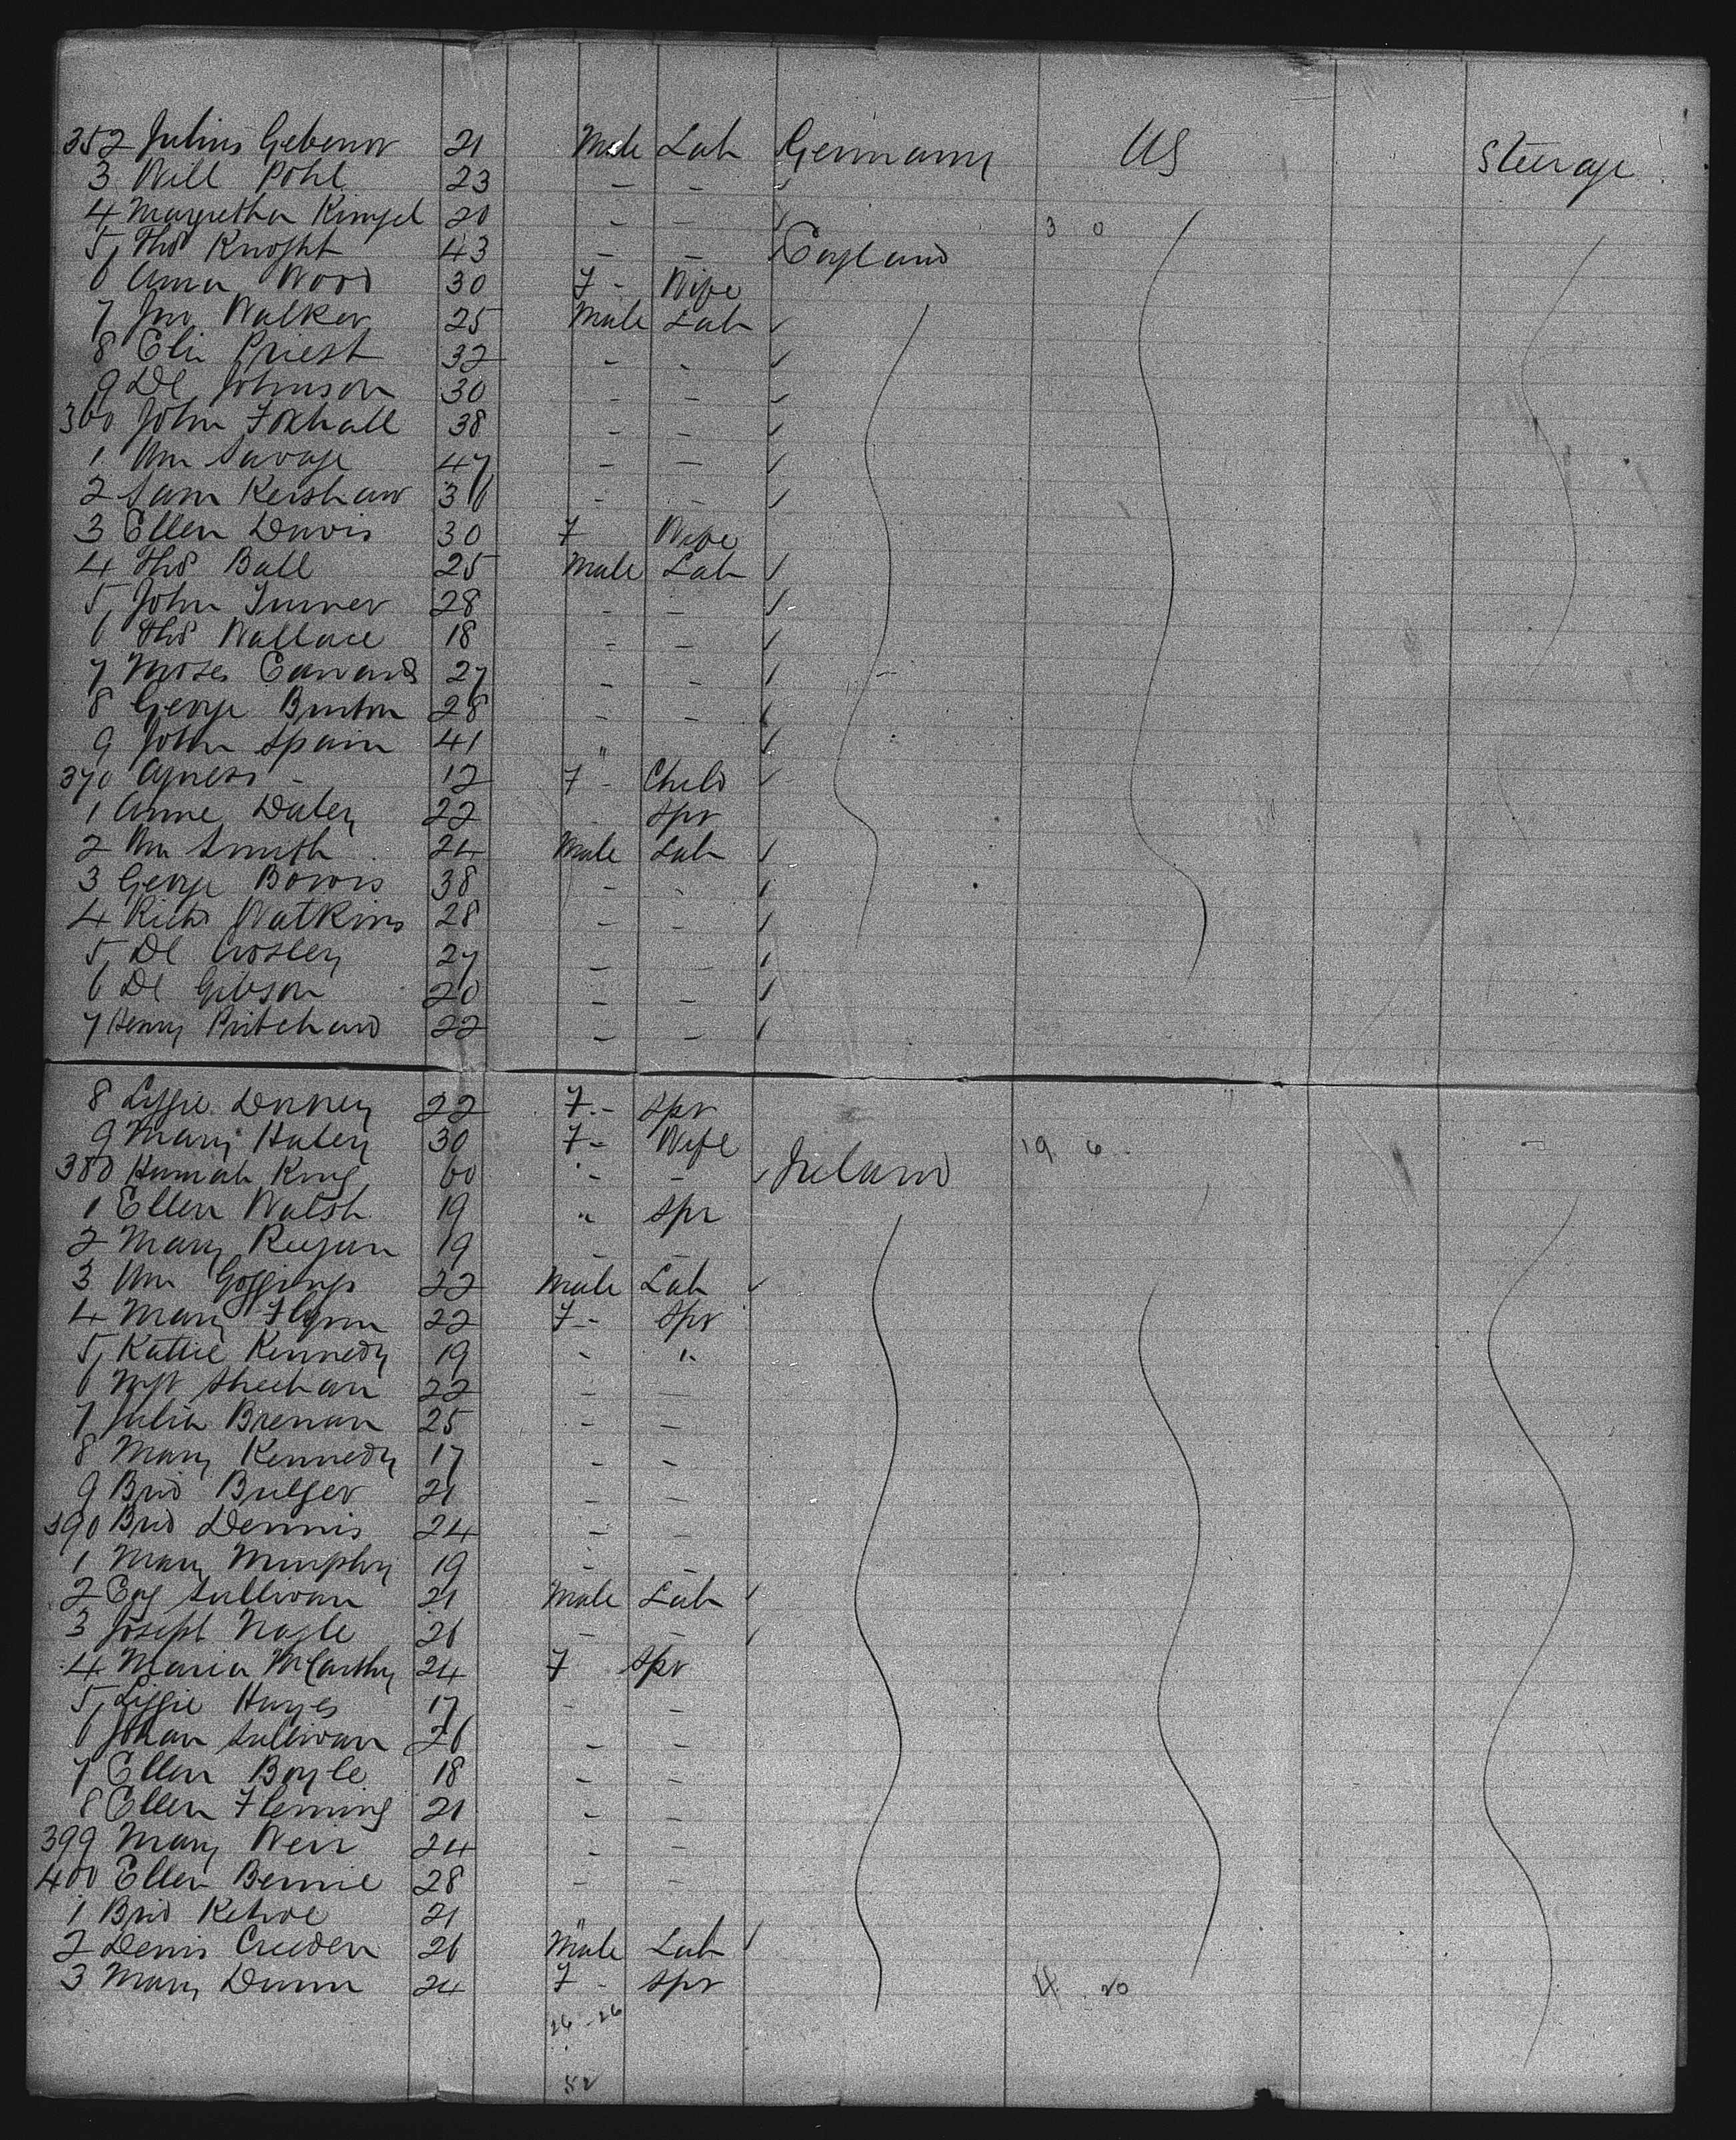 352 Julius Gebenor 21 Male Lab Germany US Steerage
3 Will Pohl 23 - - ✓
4 Margretha Kimpel 20 - - ✓ 3 0
5, Thos Knight 43 - - England
6 Anna Wood 30 F - Wife
7 Jno Walker 25 Male Lab ✓
8 Eli Priest 32 - - ✓
9 Dl Johnson 30 - - ✓
360 John Foxhall 38 - - ✓
1 Wm Savage 47 - - ✓
2 Sam Kershaw 36 - - ✓
3 Ellen Davis 30 F Wife
4 Thos Ball 25 Male Lab ✓
5, John Turner 28 - - ✓
6 Thos Wallace 18 - - ✓
7 Moses Edwards 27 - - ✓
8 George Burton 28 - - ✓
9 John Spain 41 " ✓
370 Agness - 12 F - Child ✓
1 Anne Daley 22 Spr
2 Wm Smith 24 Male Lab ✓
3 George Bowis 38 - - ✓
4 Richd Watkins 28 - - ✓
5, Dl Crosley 27 - - ✓
6 Dl Gibson 20 - - ✓
7 Henry Pritchard 22 - - ✓
8 Lizzie Dorney 22 F.- Spr
9 Mary Haley 30 F - Wife 19 6
380 Hannah King 60 " - Ireland
1 Ellen Walsh 19 " Spr
2 Mary Regan 19 - -
3 Wm Goggings 22 Male Lab ✓
4 Mary Flynn 22 F - Spr
5, Kattie Kennedy 19 - "
6 Mgt Sheehan 22 - -
7 Julia Brenan 25 - -
8 Mary Kennedy 17 - -
9 Brid Bulger 21 - -
390 Brid Dennis 24 - -
1 Mary Murphy 19 - -
2 Eug Sullivan 21 Male Lab ✓
3 Joseph Nagle 26 - - ✓
4 Maria McCarthy 24 F Spr
5, Lizzie Hayes 17 - -
6 Johan Sullivan 26 - -
7 Ellen Boyle 18 - -
8 Ellen Fleming 21 - -
399 Mary Weir 24 - -
400 Ellen Bennie 28 - -
1 Brid Kehoe 21 "
2 Denis Creeden 26 Male Lab ✓
3 Mary Dunn 24 F - Spr 4 20
26 - 26
52